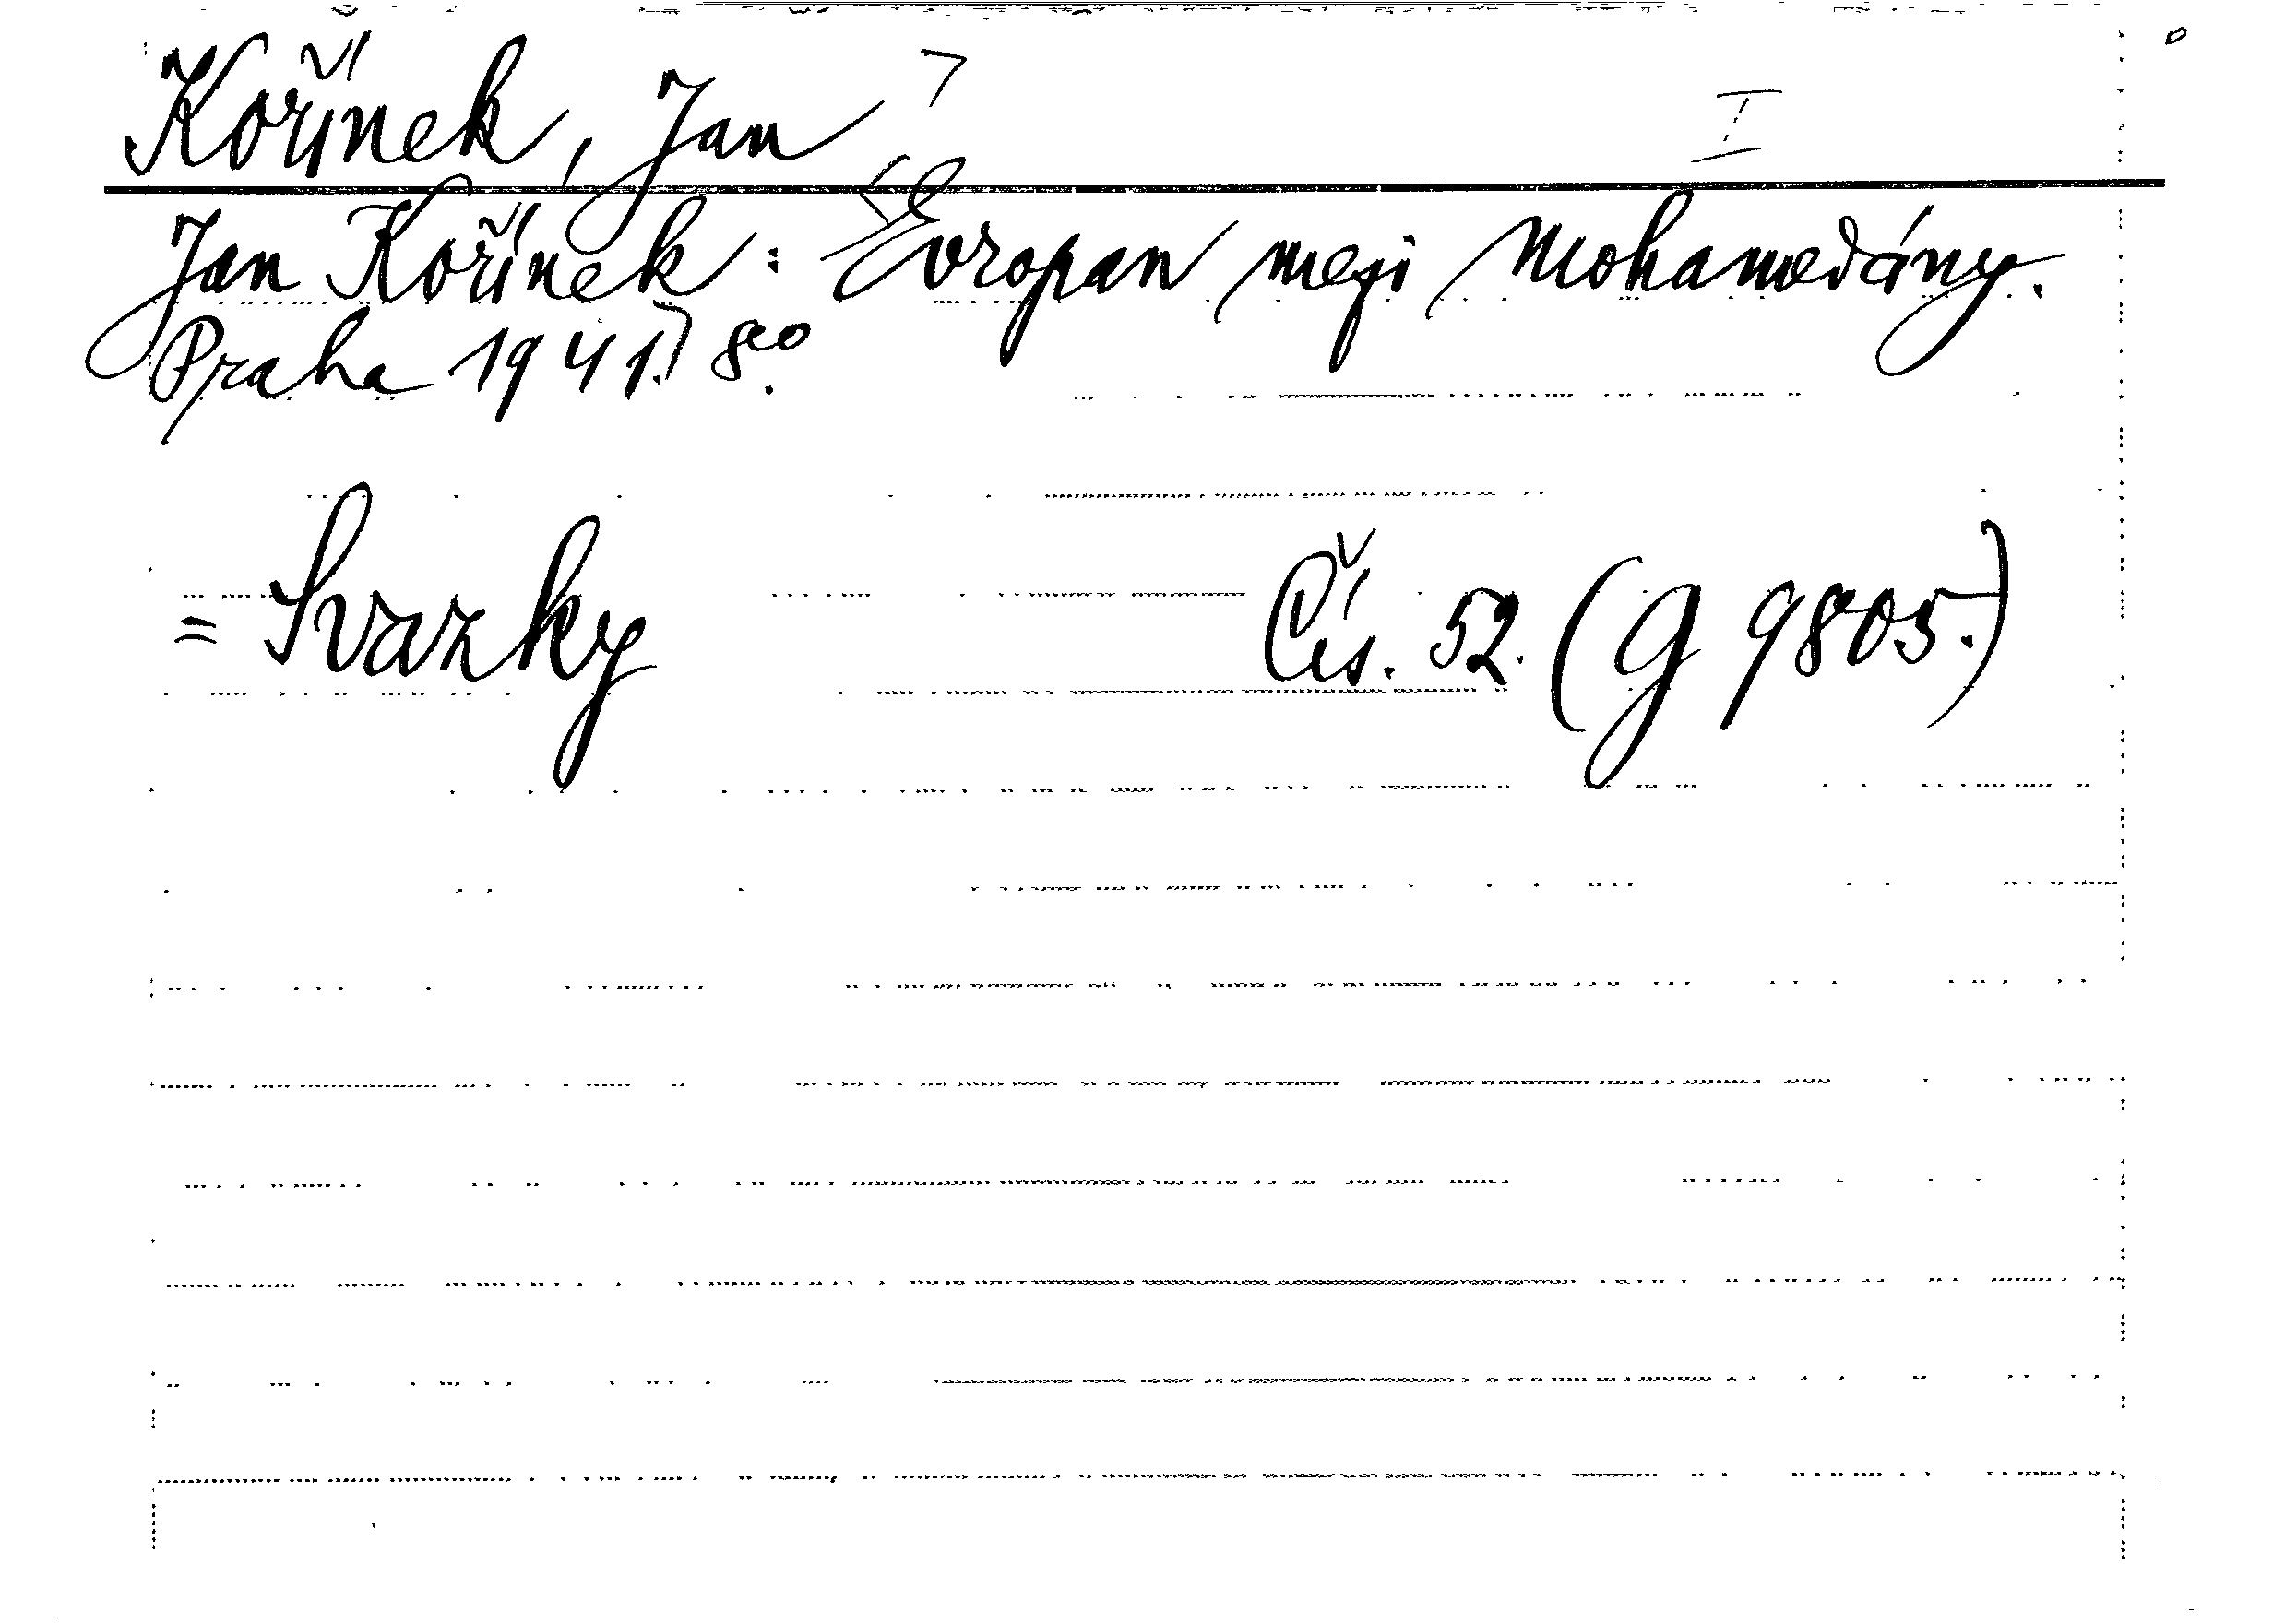 Kořínek, Jan ⌝ I
Jan Kořínek: ⌞Evropan mezi Mohamedány.
Praha 1941.⌝ 8<sup>o</sup>.
= Svazky Čís. 52. (G 9805.)